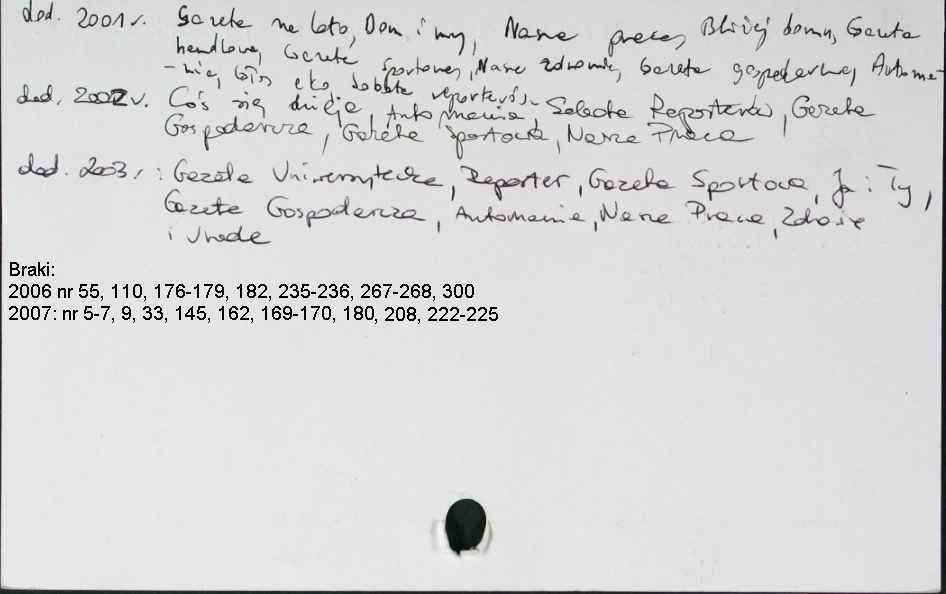 dod. 2001 r. Gazeta na lato, Dom i my, Nasza praca, Bliżej domu, Gazeta
handlowa, Gazeta Sportowa, Nasze zdrowie, Gazeta gospodarcza, Automa-
-nia, eko Sobota reporterów
dod. 2002 r. Coś się dzieje, Automania, Sobota Reporterów, Gazeta
Gospodarcza, Gazeta Sportowa, Nasza Praca
dod. 2003 r: Gazeta Uniwersytecka, Reporter, Gazeta Sportowa, Ja i Ty,
Gazeta Gospodarcza, Automania, Nasza Praca, Zdrowie
i Uroda
Braki:
2006 nr 55, 110, 176-179, 182, 235-236, 267-268, 300
2007: nr 5-7, 9, 33, 145, 162, 169-170, 180, 208, 222-225